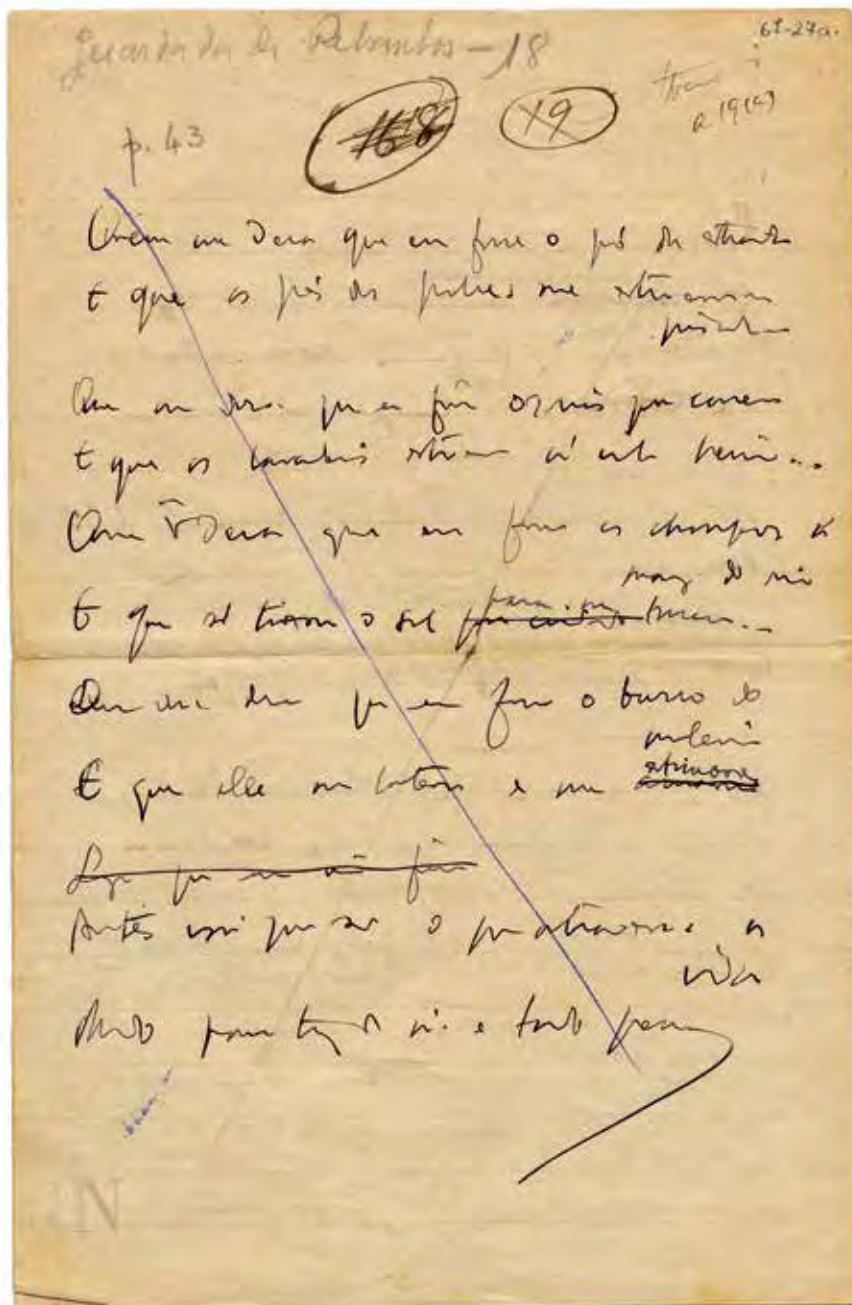 Guardador de Rebanhos - 18
68-27a.
p. 43
1618 19
a 19(a)
Quem me dera que eu fosse o pó da estrada
E que os pés dos pobres me estivessem
pisando
Quem me dera que eu fosse os rios que correm
E que as lavadeiras estivessem à minha beira...
Quem me dera que eu fosse os choupos à
margem do rio
E que só tivesse o sol
Quem me dera que eu fosse o burro do
moleiro
E que elle me batesse e me estimasse
que eu não fosse
Antes isso que ser o que atravessa a
vida
Olhando para traz de si e tendo pena